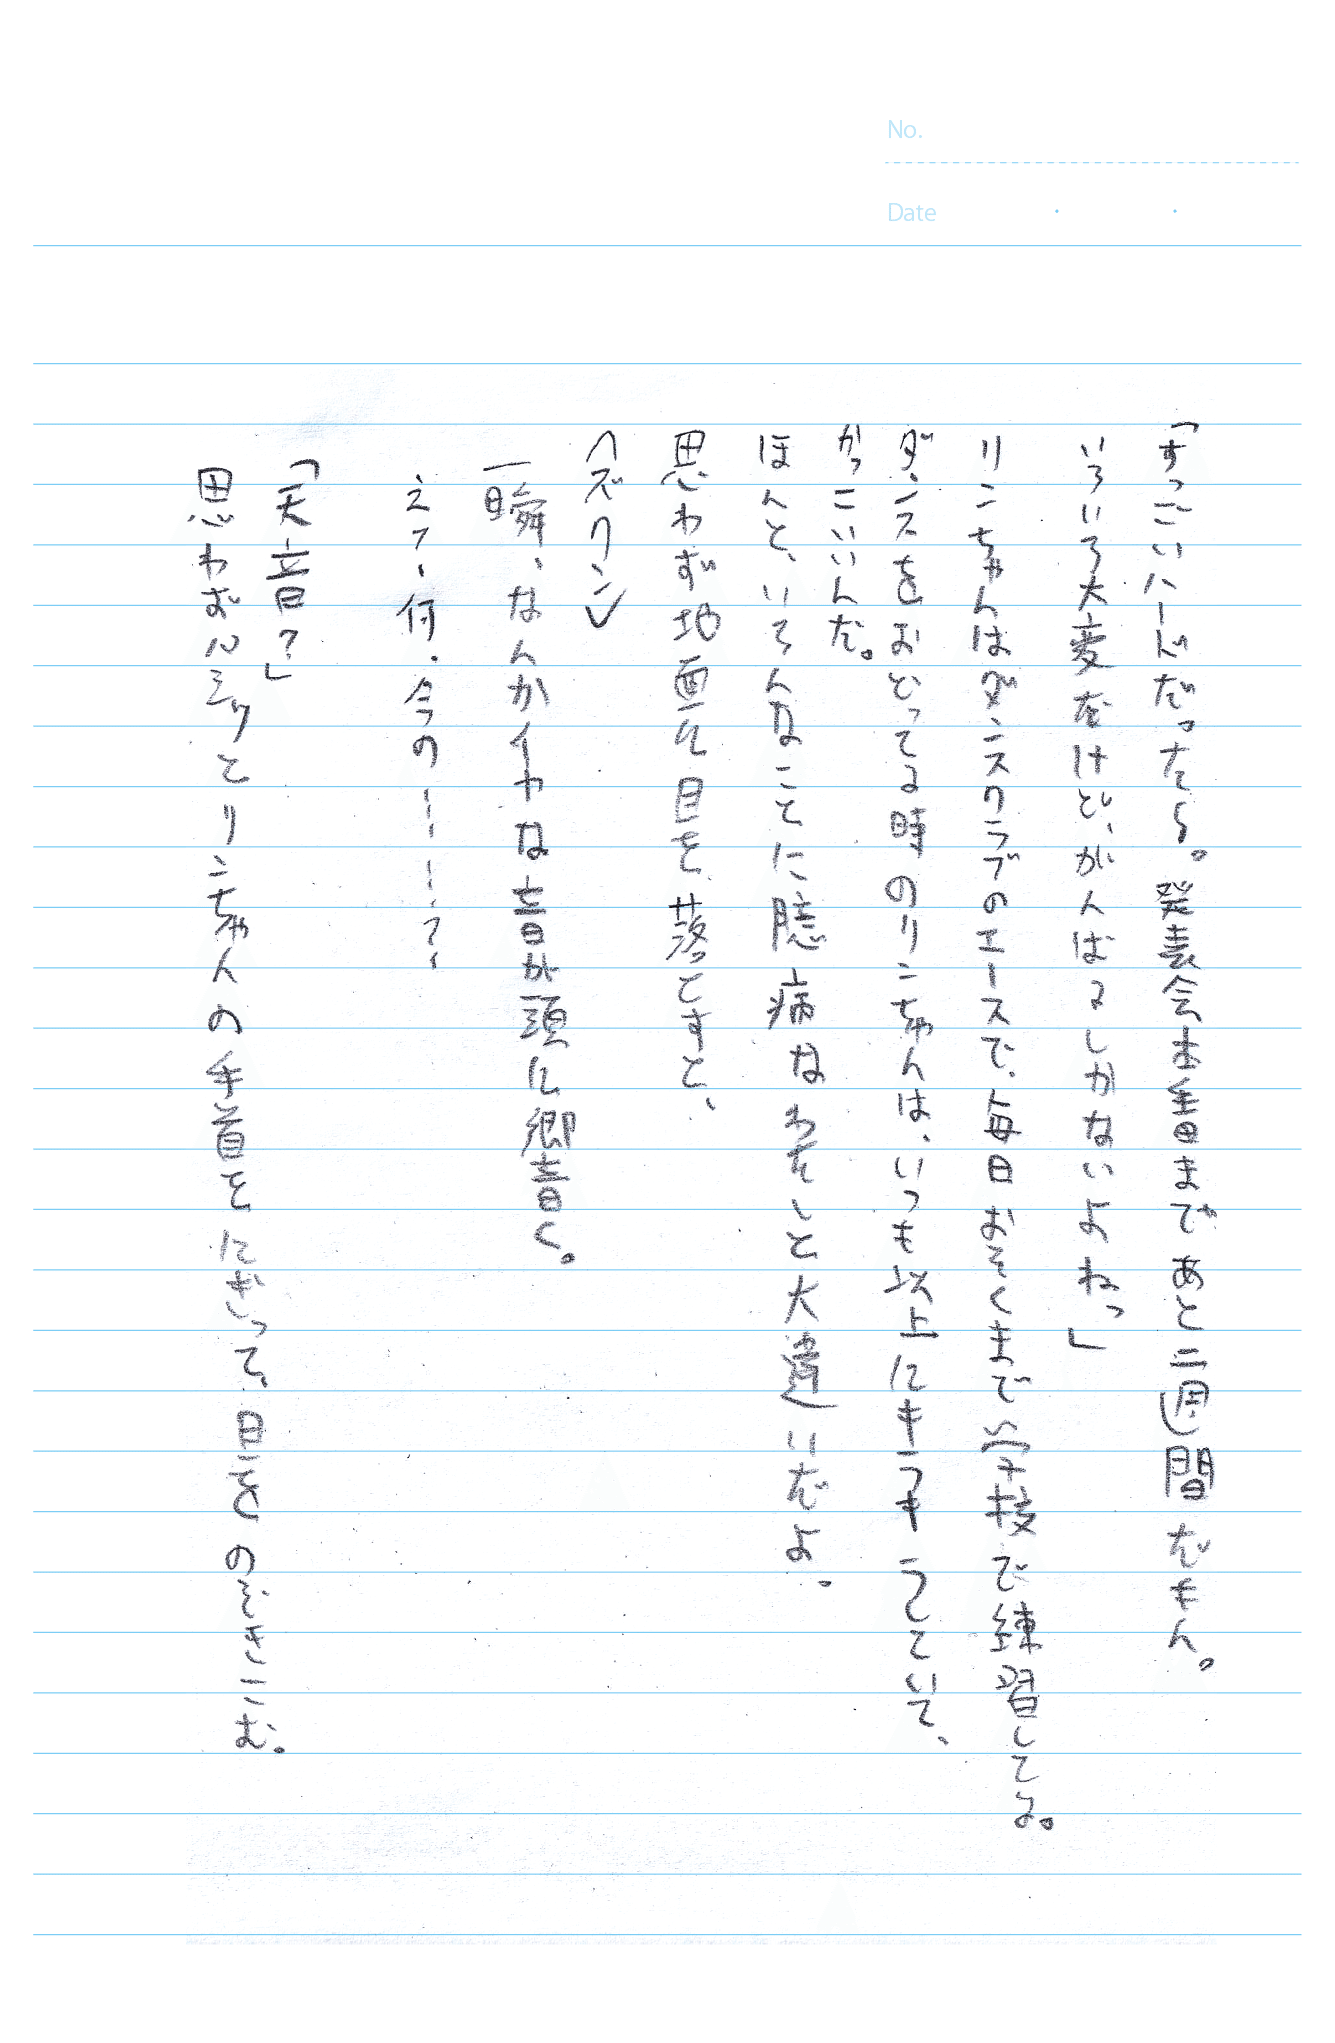 No.
Date
「すっごいハードだったよ。発表会本番まであと二週間だもん。
いろいろ大変だけど、がんばるしかないよねっ」
リンちゃんはダンスクラブのエースで、毎日おそくまで学校で練習してる。
ダンスをおどってる時のリンちゃんは、いつも以上にキラキラしていて、
かっこいいんだ。
ほんと、いろんなことに臆病なわたしと大違いだよ。
思わず地面に目を落とすと、
〈ズクン〉
一瞬、なんかイヤな音が頭に響く。
えっ、何、今の----?、
「天音?」
思わずパシッとリンちゃんの手首をにぎって、目をのぞきこむ。